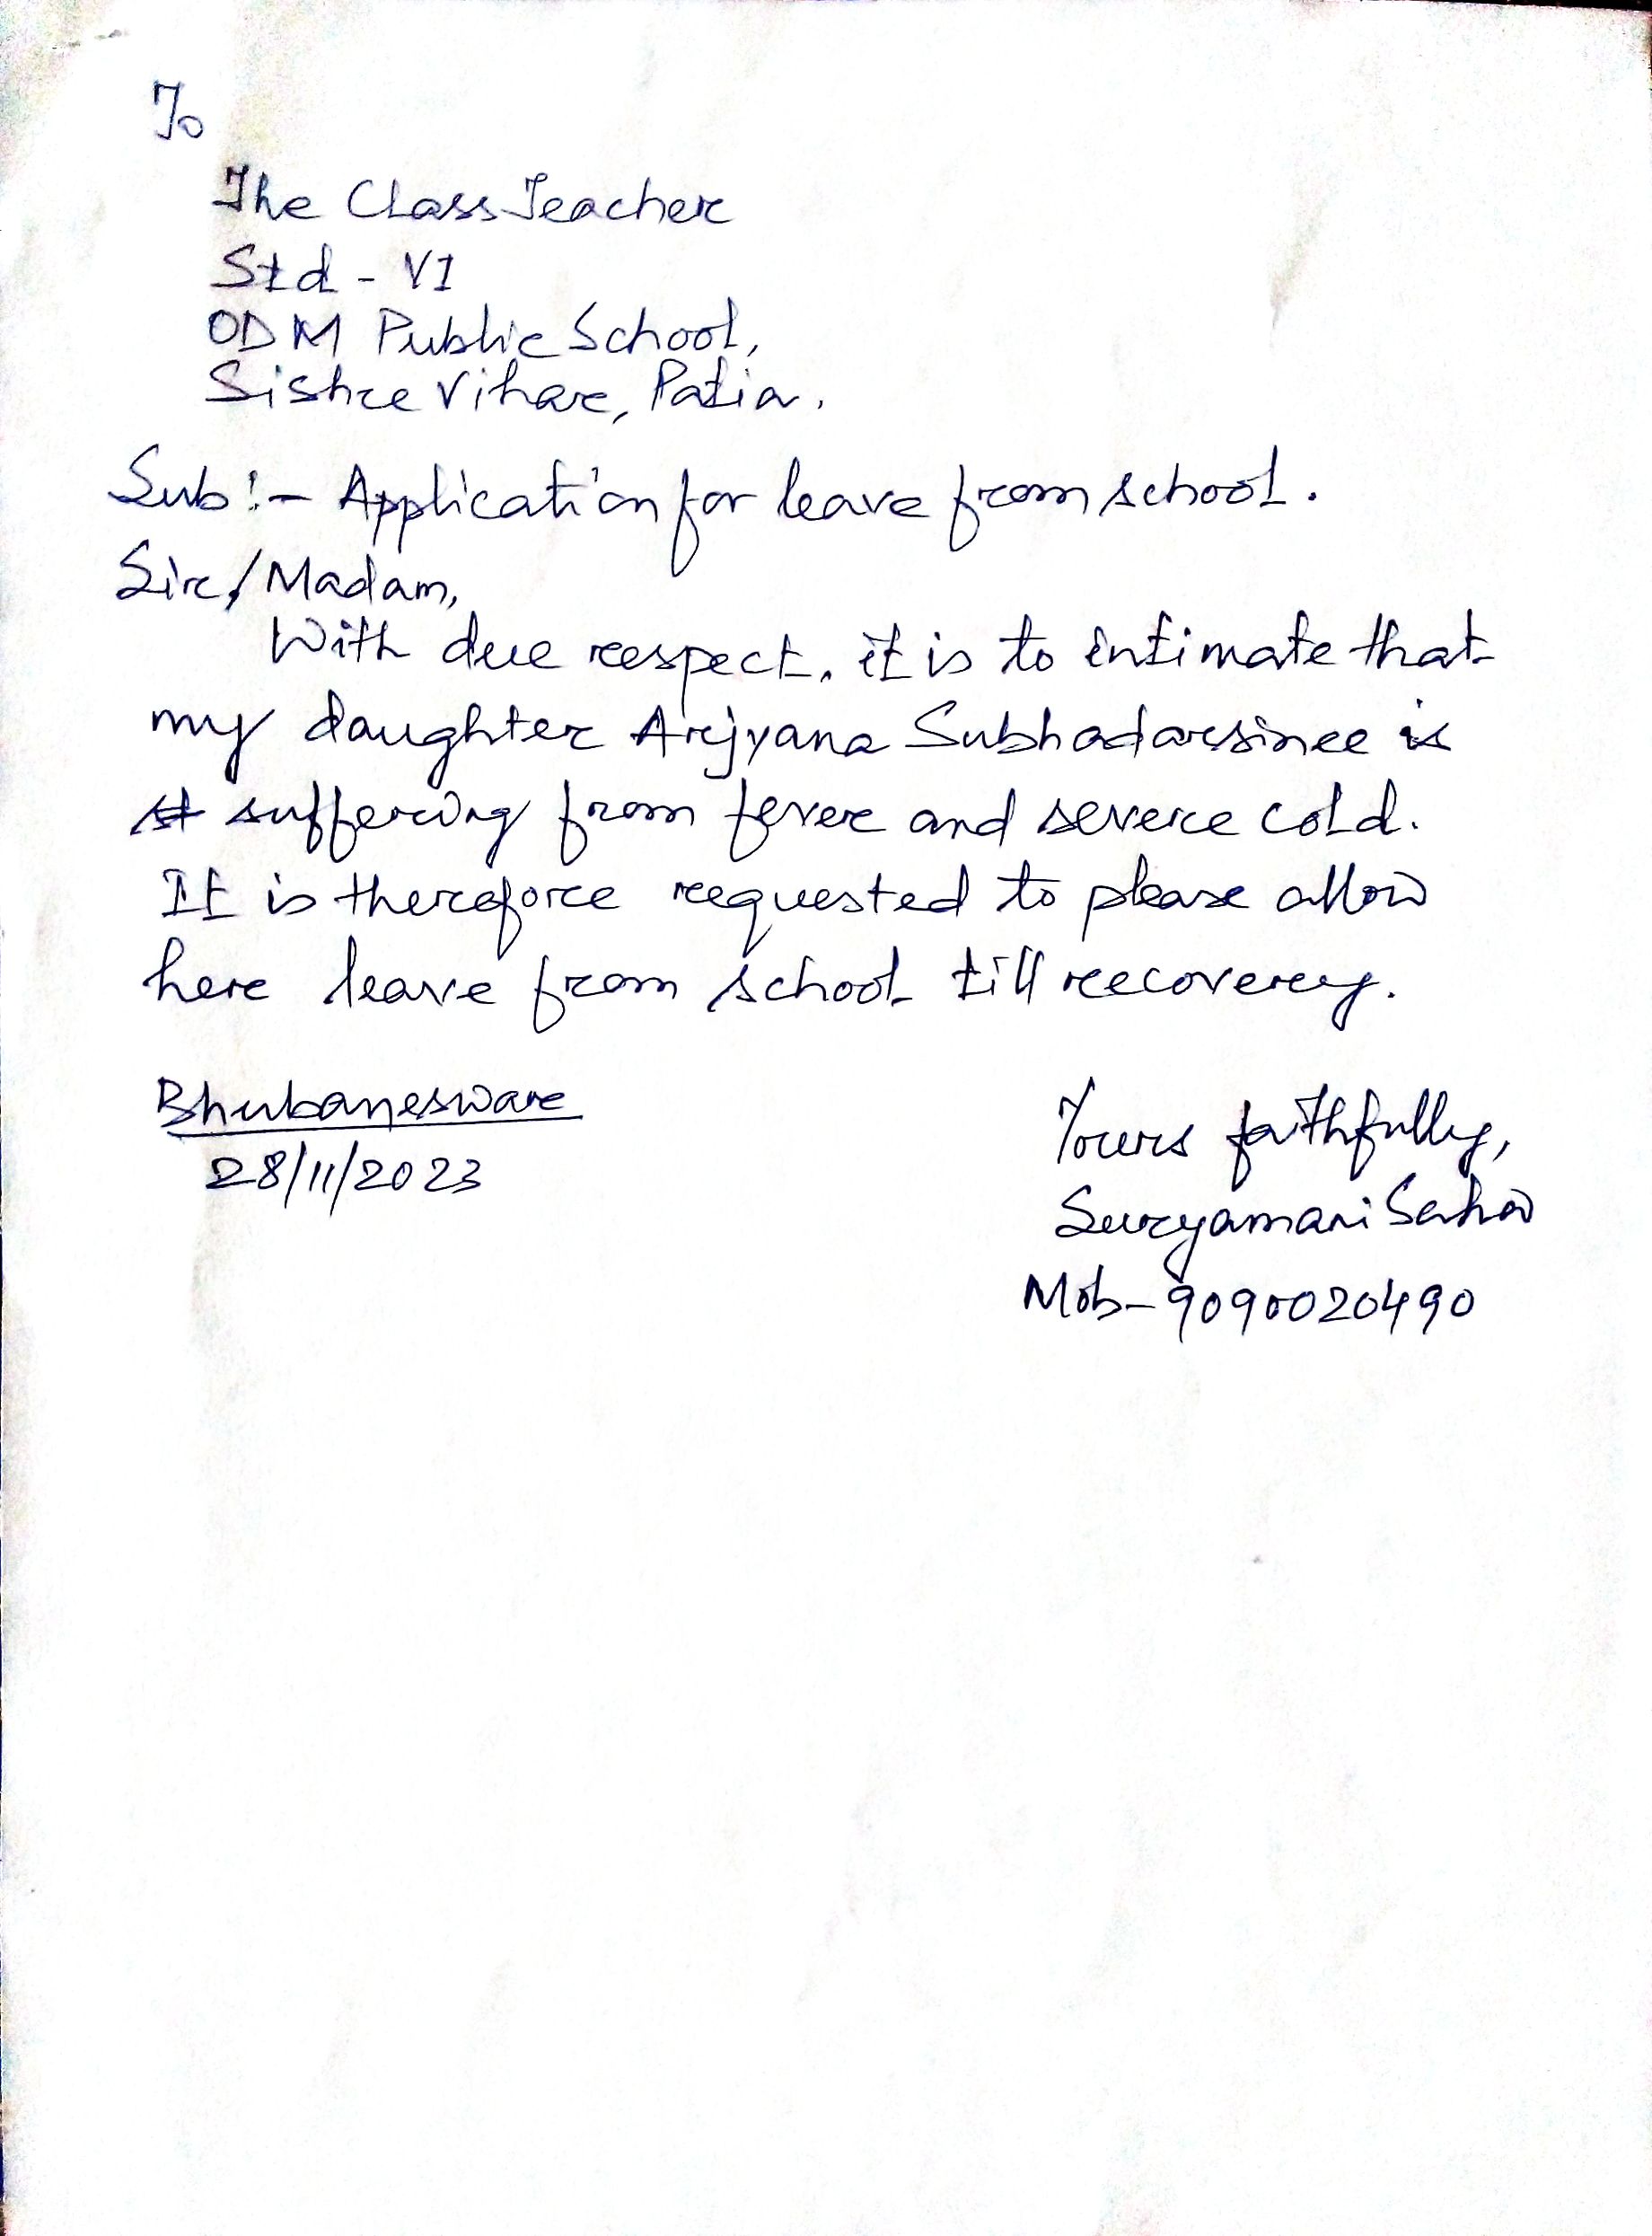 To
The Class Teacher
Std - VI
ODM Public School,
Sishu Vihar, Patia.
Sub:- Application for leave from school.
Sir/Madam,
With due respect, it is to intimate that
my daughter Arjyana Subhadarsinee is
suffering from fever and severe cold.
It is therefore requested to please allow
her leave from school till recovery.
Bhubaneswar
28/11/2023
Yours faithfully,
Suryamani Sahoo
Mob-9090020490